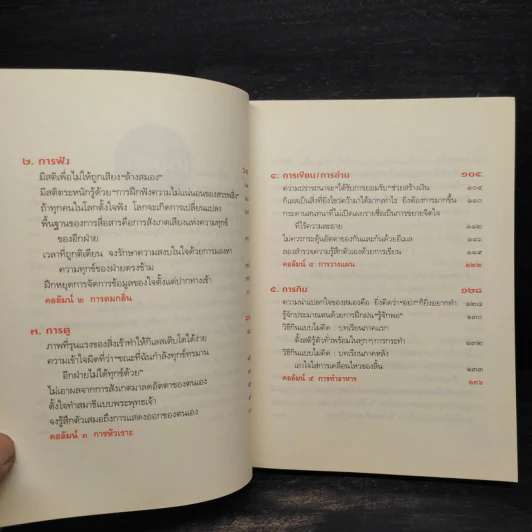 ๒. การฟัง
มีสติเพื่อไม่ให้ถูกเสียง "ล้างสมอง"
มีสติตระหนักรู้ด้วย "การฝึกฟังความไม่แน่นอนของสรรพสิ่ง"
ถ้าทุกคนในโลกตั้งใจฟัง โลกจะเกิดการเปลี่ยนแปลง
พื้นฐานของการสื่อสารคือการสังเกตเสียงแห่งความทุกข์
ของอีกฝ่าย
เวลาที่ถูกติเตียน จงรักษาความสงบในใจด้วยการมองหา
ความทุกข์ของฝ่ายตรงข้าม
ฝึกหยุดการจัดการข้อมูลของใจตั้งแต่ปากทางเข้า
คอลัมน์ ๒ การดมกลิ่น
๓. การดู
ภาพที่รุนแรงของสิ่งเร้าทำให้กิเลสเติบโตได้ง่าย
ความเข้าใจผิดที่ว่า "ขณะที่ฉันกำลังทุกข์ทรมาน
อีกฝ่ายไม่ได้ทุกข์ด้วย"
ไม่เอาผลจากการสังเกตมาลดอัตตาของตนเอง
ตั้งใจทำสมาธิแบบพระพุทธเจ้า
จงรู้สึกตัวเสมอถึงการแสดงออกของตนเอง
คอลัมน์ ๓ การหัวเราะ
๔. การเขียน/การอ่าน ๑๐๔
ความปรารถนาจะ "ได้รับการยอมรับ" ช่วยสร้างเงิน ๑๐๔
กิเลสเป็นสิ่งที่ยิ่งไขว่คว้ามาได้มากเท่าไร ยิ่งต้องการมากขึ้น
กระดานสนทนาที่ไม่เปิดเผยรายชื่อเป็นการขยายจิตใจ
ที่ไร้ความละอาย ๑๑๒
ไม่ควรกระตุ้นอัตตาของกันและกันด้วยอีเมล ๑๑๖
ลองสำรวจความรู้สึกตัวเองด้วยการเขียน ๑๑๙
คอลัมน์ ๔ การวางแผน ๑๒๒
๕. การกิน ๑๒๘
ความน่าเปลกใจของสมองคือ ยิ่งคิดว่า "อย่า" ก็ยิ่งอยากทำ ๑๒๘
รู้จักประมาณตนด้วยการฝึกฝน "รู้จักพอ" ๑๓๐
วิธีกินแบบไม่คิด : บทเรียนภาคแรก
ตั้งสติรู้ตัวทั่วพร้อมในทุกๆ การกระทำ ๑๓๒
วิธีกินแบบไม่คิด : บทเรียนภาคหลัง
เอาใจใส่การเคลื่อนไหวของลิ้น ๑๓๓
คอลัมน์ ๕ การทำอาหาร ๑๓๖